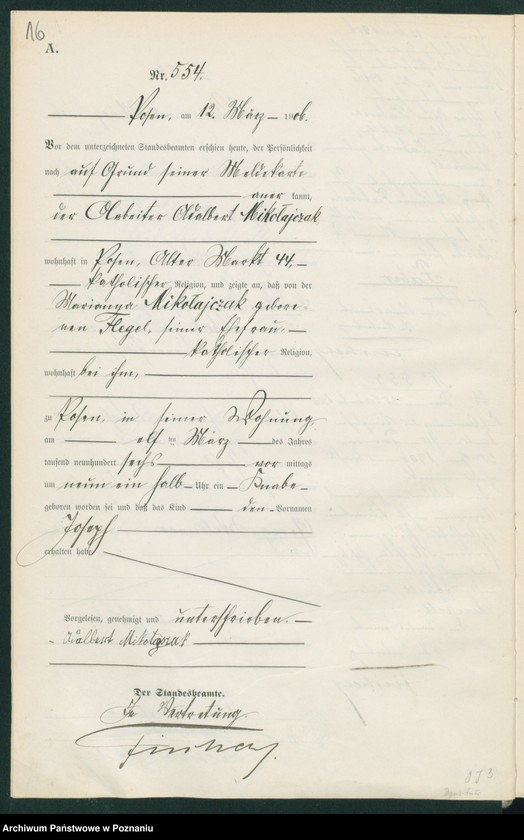 16
A.
Nr. 554.
Posen, am 12. März 1906.
Vor dem unterzeichneten Standesbeamten erschien heute, der Persönlichkeit
nach auf Grund seiner Meldekarte
aner kannt,
der Arbeiter Adalbert Mikołajczak
wohnhaft in Posen, Alter Markt 44,
katholischer Religion, und zeigte an, daß von der
Marianna Mikołajczak gebore-
nen Flegel, seiner Ehefrau,
katholischer Religion,
wohnhaft bei ihm,
zu Posen, in seiner Wohnung,
am elf ten März des Jahres
tausend neunhundert sechs vor mittags
um neun ein halb Uhr ein Knabe
geboren worden sei und daß das Kind den Vornamen
Joseph
erhalten habe
Vorgelesen, genehmigt und unterschrieben.
Adalbert Mikołajczak
Der Standesbeamte.
In Vertretung
Archiwum Państwowe w Poznaniu